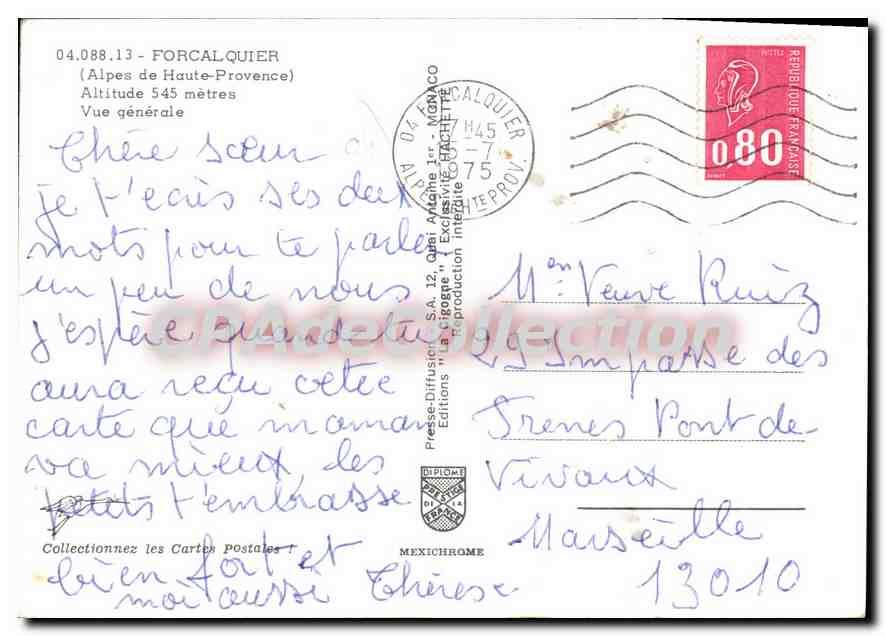 04.088.13 - FORCALQUIER
(Alpes de Haute-Provence)
Altitude 545 mètres
Vue générale
Chère sœur
je t'ecris ses deux
mots pour te parler
un peu de nous
j'espère quande tu
aura reçu cette
carte que maman
va mieux les
petits t'embrasse
bien fort et
moi aussi Thérèse
Collectionnez les Cartes Postales !
Presse-Diffusion S.A. 12, Quai Antoine 1er - MONACO
Editions "La Cigogne" - Exclusivité HACHETTE
Reproduction interdite
DIPLOME
PRESTIGE
DE LA
FRANCE
MEXICHROME
04 FORCALQUIER
17H45
-7
1975
ALPES HTE PROV.
REPUBLIQUE FRANÇAISE
0,80
Veuve Ruiz
Impasse des
Frenes Pont de
Vivaux
Marseille
13010
CPAdeCollection